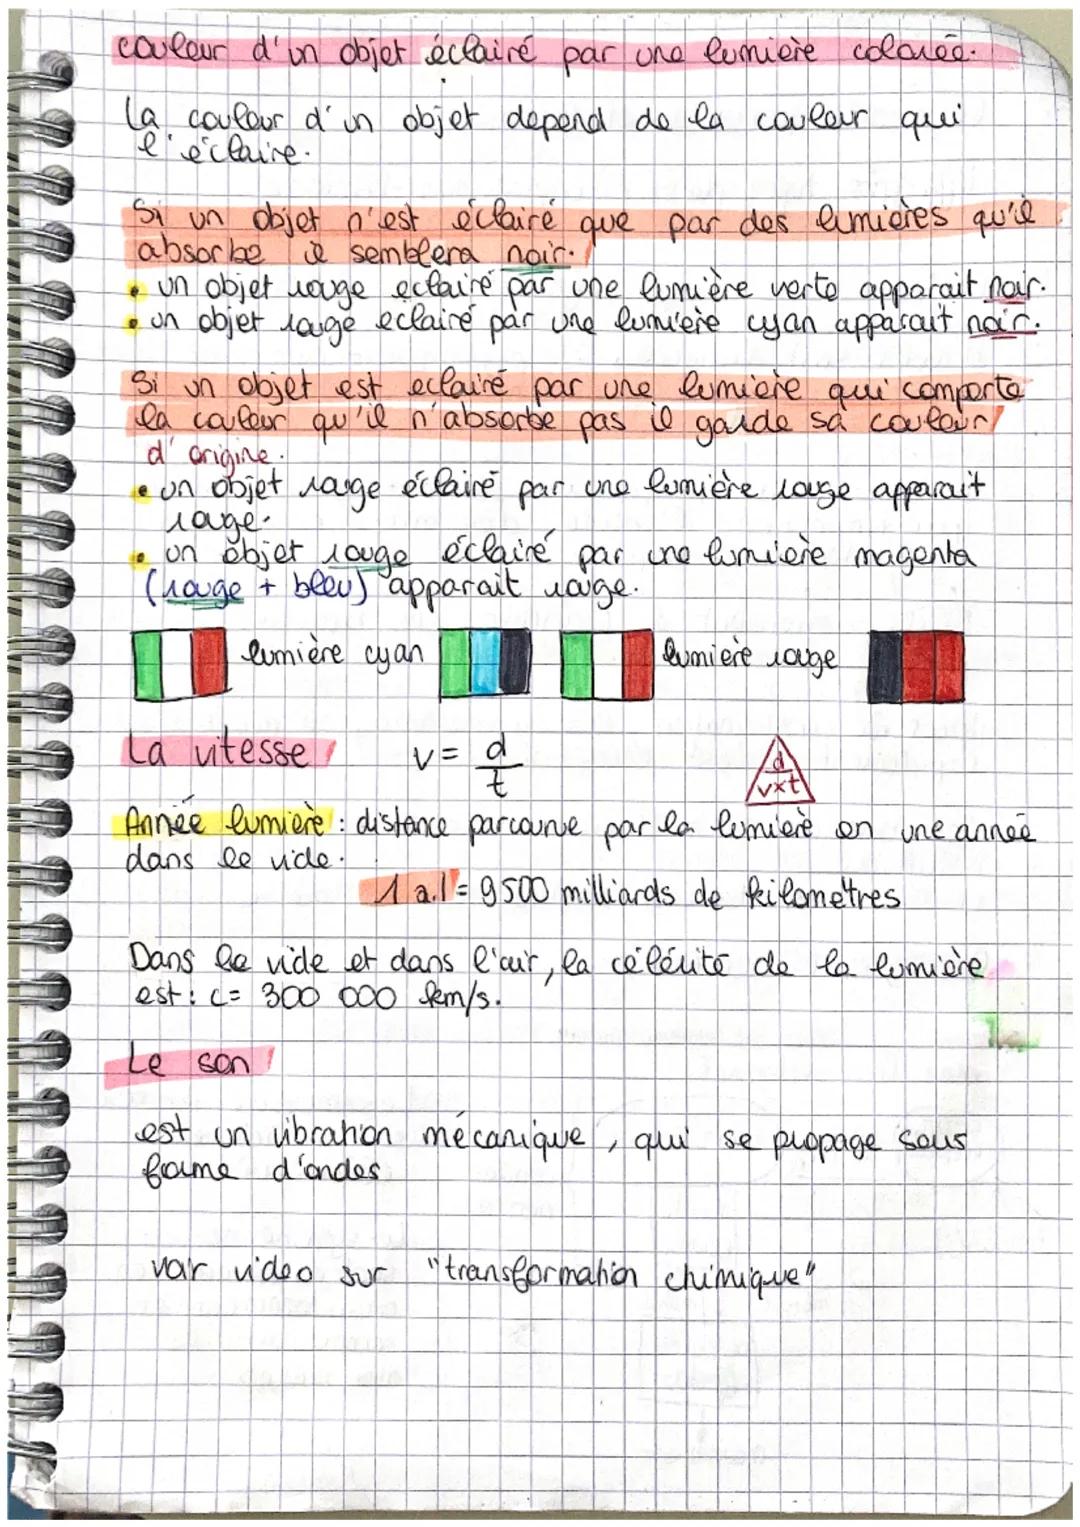 couleur d'un objet éclairé par une lumière colorée.
La couleur d'un objet depend de la couleur qui
l'éclaire.
Si un objet n'est éclairé que par des lumières qu'il
absorbe il semblera noir.
• un objet rouge eclairé par une lumière verte apparait noir.
• un objet rouge eclairé par une lumière cyan apparait noir.
Si un objet est eclairé par une lumière qui comporte
la couleur qu'il n'absorbe pas il garde sa couleur
d'origine.
• un objet rouge éclairé par une lumière rouge apparait
rouge.
• un objet rouge éclairé par une lumière magenta
(rouge + bleu) apparait rouge.
lumière cyan lumière rouge
La vitesse v = d/t d/v×t
Année lumière : distance parcourue par la lumière en une année
dans le vide.
1 a.l = 9500 milliards de kilomètres
Dans le vide et dans l'air, la célérité de la lumière
est : c = 300 000 km/s.
Le son
est un vibration mécanique, qui se propage sous
forme d'ondes
voir video sur "transformation chimique"